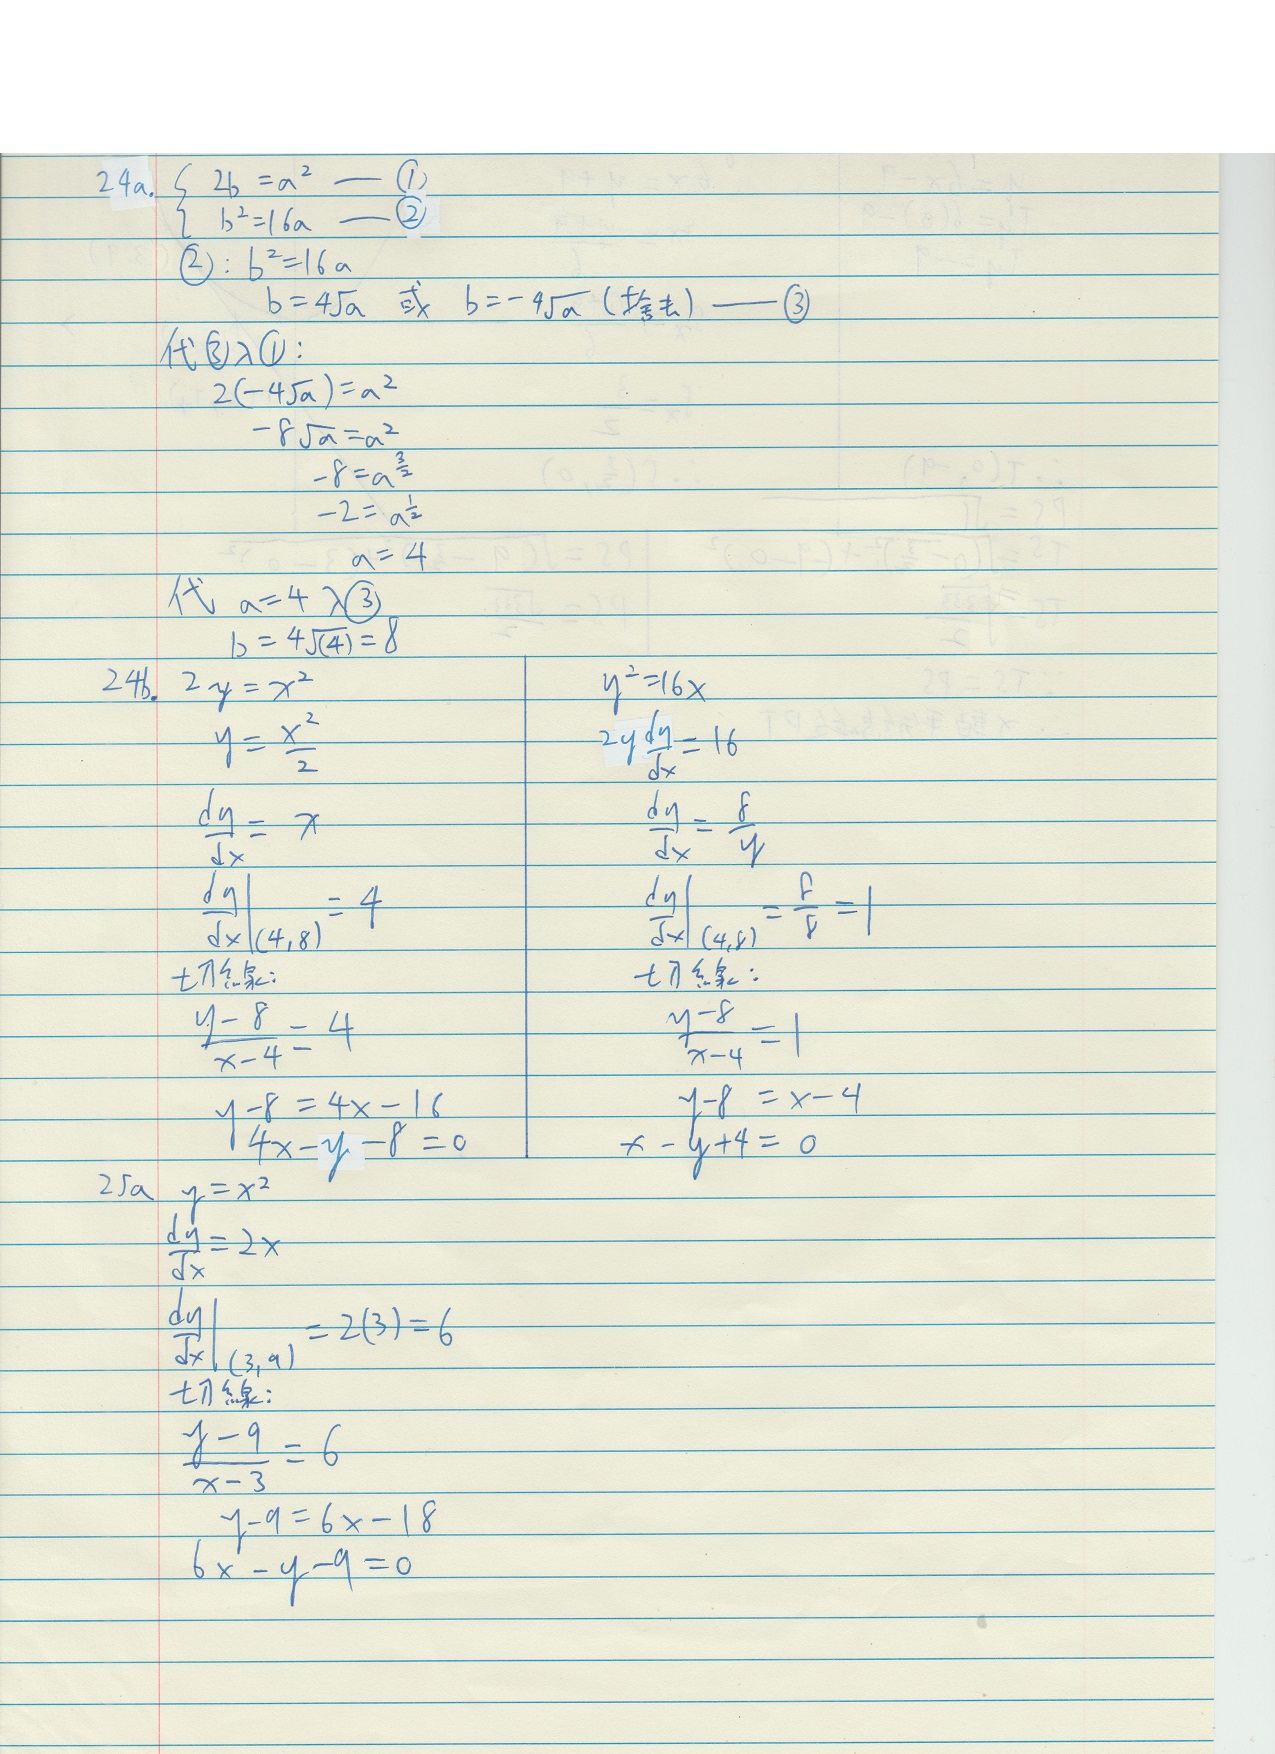 24a. { 2b = a² — ①
b² = 16a — ②
②: b² = 16a
b = 4√a 或 b = -4√a (捨去) — ③
代③入①:
2(-4√a) = a²
-8√a = a²
-8 = a^(3/2)
-2 = a^(1/2)
a = 4
代 a = 4 入③
b = 4√(4) = 8
24b. 2y = x²
y = x²/2
dy/dx = x
dy/dx|(4,8) = 4
切線:
(y-8)/(x-4) = 4
y-8 = 4x-16
4x-y-8 = 0
y² = 16x
2y dy/dx = 16
dy/dx = 8/y
dy/dx|(4,8) = 8/8 = 1
切線:
(y-8)/(x-4) = 1
y-8 = x-4
x-y+4 = 0
25a y = x²
dy/dx = 2x
dy/dx|(3,9) = 2(3) = 6
切線:
(y-9)/(x-3) = 6
y-9 = 6x-18
6x-y-9 = 0